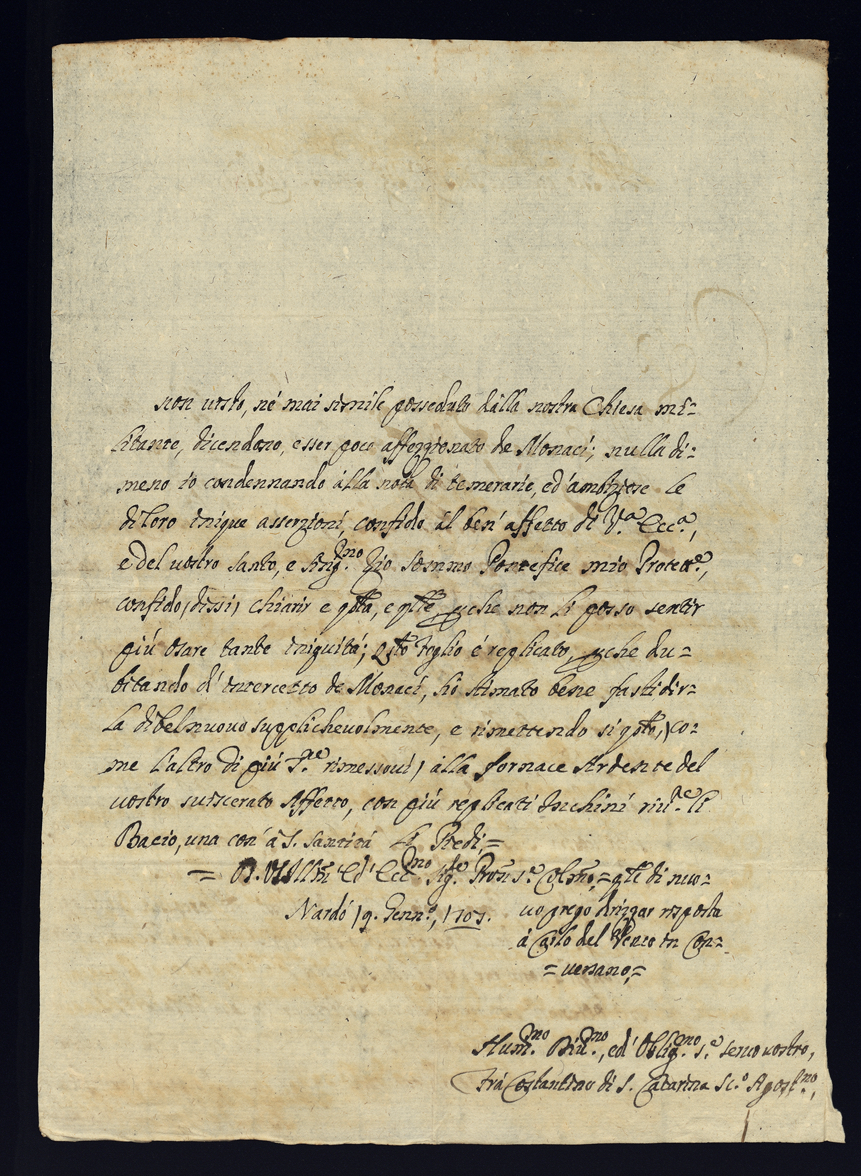 non visto, né mai simile posseduto dalla nostra Chiesa mi=
litante, dicendono, esser poco affezzionato de Monaci; nulla di=
meno io condennando alla nota di temerarie, ed' ambiziose le
di loro inique asserzioni, confido al ben' affetto di V.ª Ecc.ª,
e del vostro santo, e Xing.mo Zio sommo Pontefice mio Protett.e,
confido, dissi, chiarir e q.sta, e q.lle, perche non li posso sentir
piú osare tante iniquitá; Q.sto foglio é replicato, perche du=
bitando d' intercetto de Monaci, hó stimato bene fastidir=
la di bel nuovo supplichevolmente, e rimettendosi q.sto, (co=
me l'altro di giá rimessovi) alla fornace Ardente del
vostro sviscerato Affetto, con piú replicati Inchini riv.te li
Bacio, una con' á S. Santitá li Piedi=
= D. V. Ill.ma ed' Ecc.mo Sig.re Pron s.e Col.mo,= di nuo=
Nardó 19. Genn.o, 1705. vo prego drizzar risposta
á Carlo del in Con=
= versano,=
Hum.mo Div.mo, ed' Oblig.mo s.e servo vostro,
frá Costantino di S. Catarina Sc.o Agost.no,